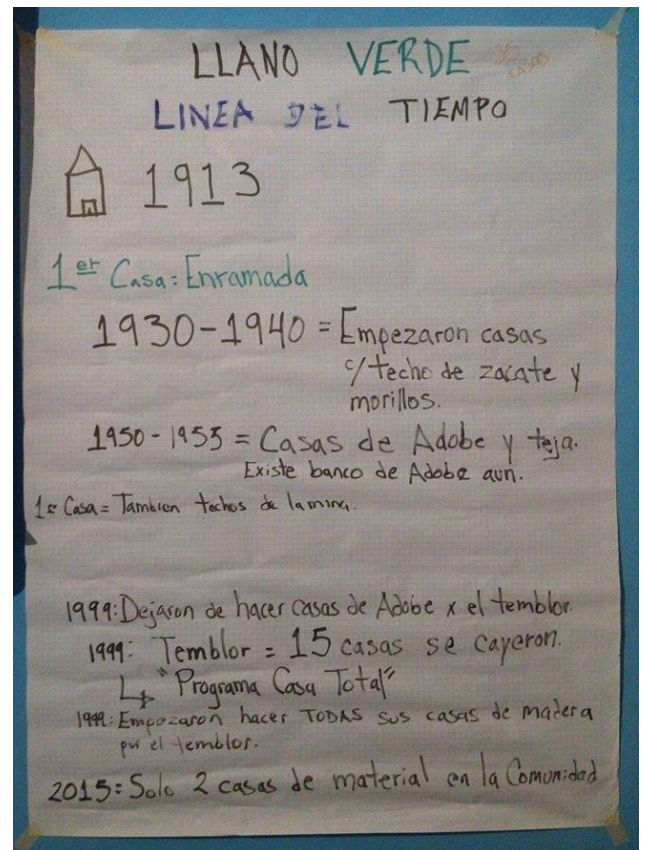 LLANO VERDE
LINEA DEL TIEMPO
1913
1er Casa = Enramada
1930-1940 = Empezaron casas
c/ techo de zacate y
morillos.
1950-1955 = Casas de Adobe y teja.
Existe banco de Adobe aun.
1er Casa = Tambien techos de lamina.
1999: Dejaron de hacer casas de Adobe x el temblor.
1999: Temblor = 15 casas se cayeron.
↳ "Programa Casa Total"
1999: Empezaron hacer TODAS sus casas de madera
por el temblor.
2015: Solo 2 casas de material en la Comunidad